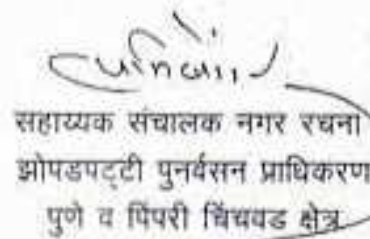 सहाय्यक संचालक नगर रचना
झोपडपट्टी पुनर्वसन प्राधिकरण
पुणे व पिंपरी चिंचवड क्षेत्र